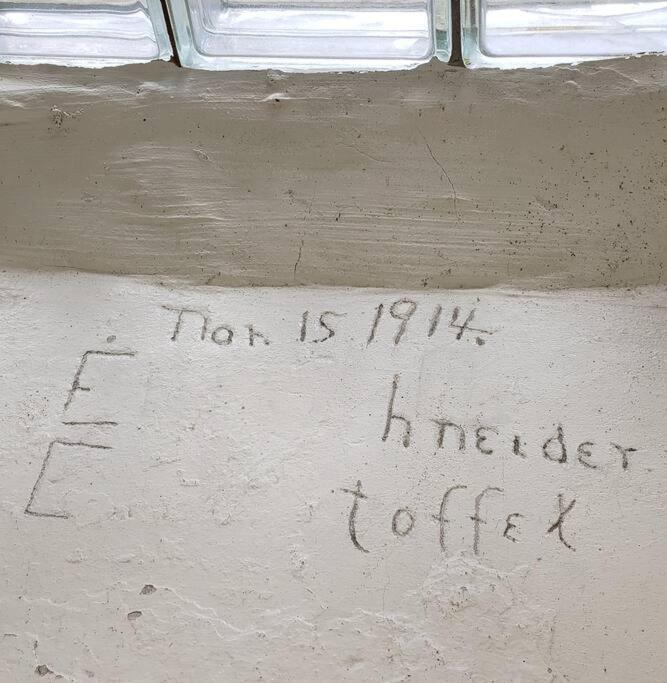 Nov. 15 1914.
E hneider
E toffel